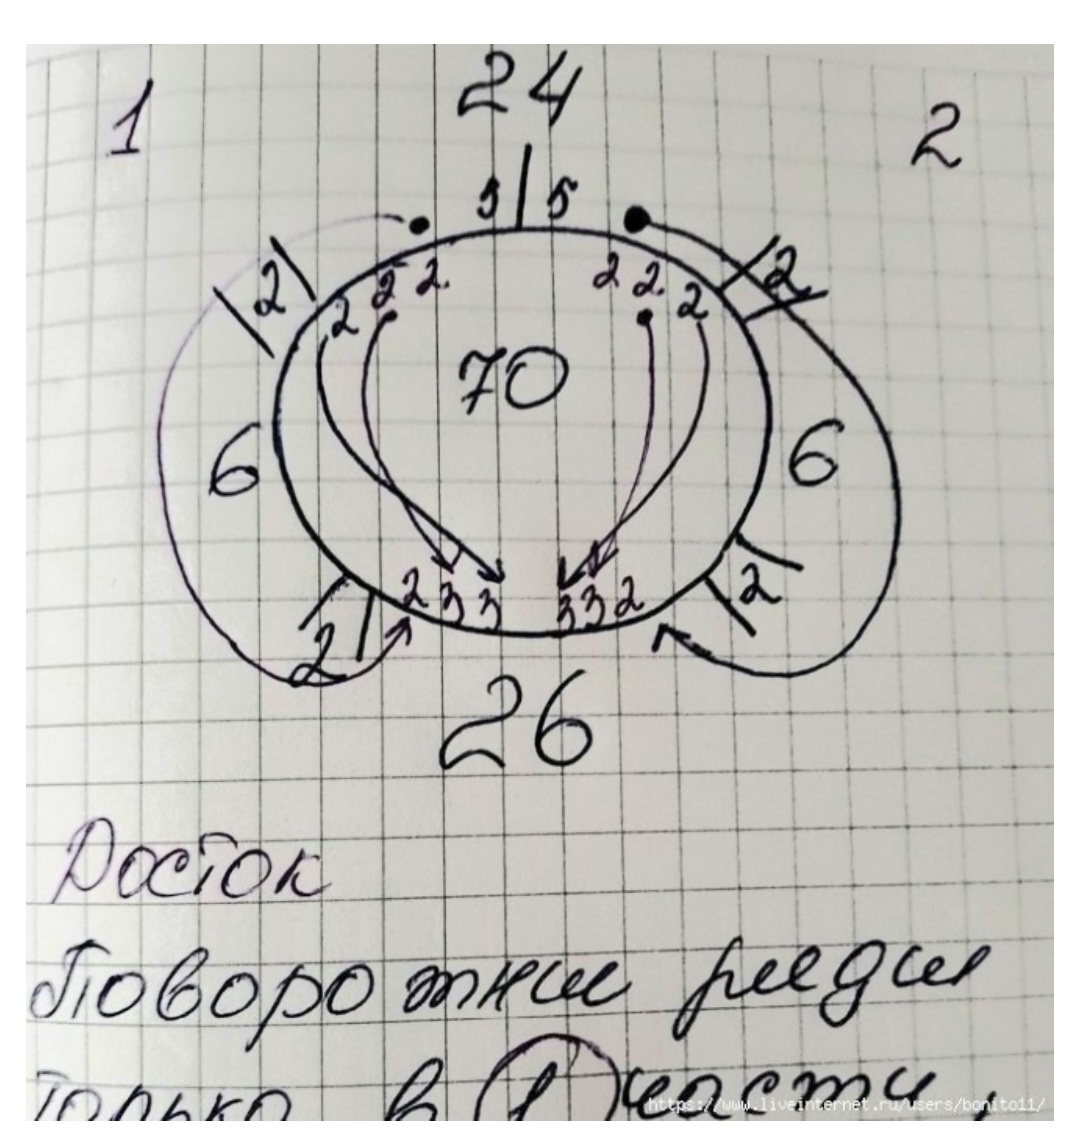 24
1 2
5 5
2 2
2 2 2 2 2 2
70
6 6
2 3 3 3 3 2
2 2
26
Росток
Поворотные ряды
только в 1 части,
https://www.liveinternet.ru/users/bonito11/